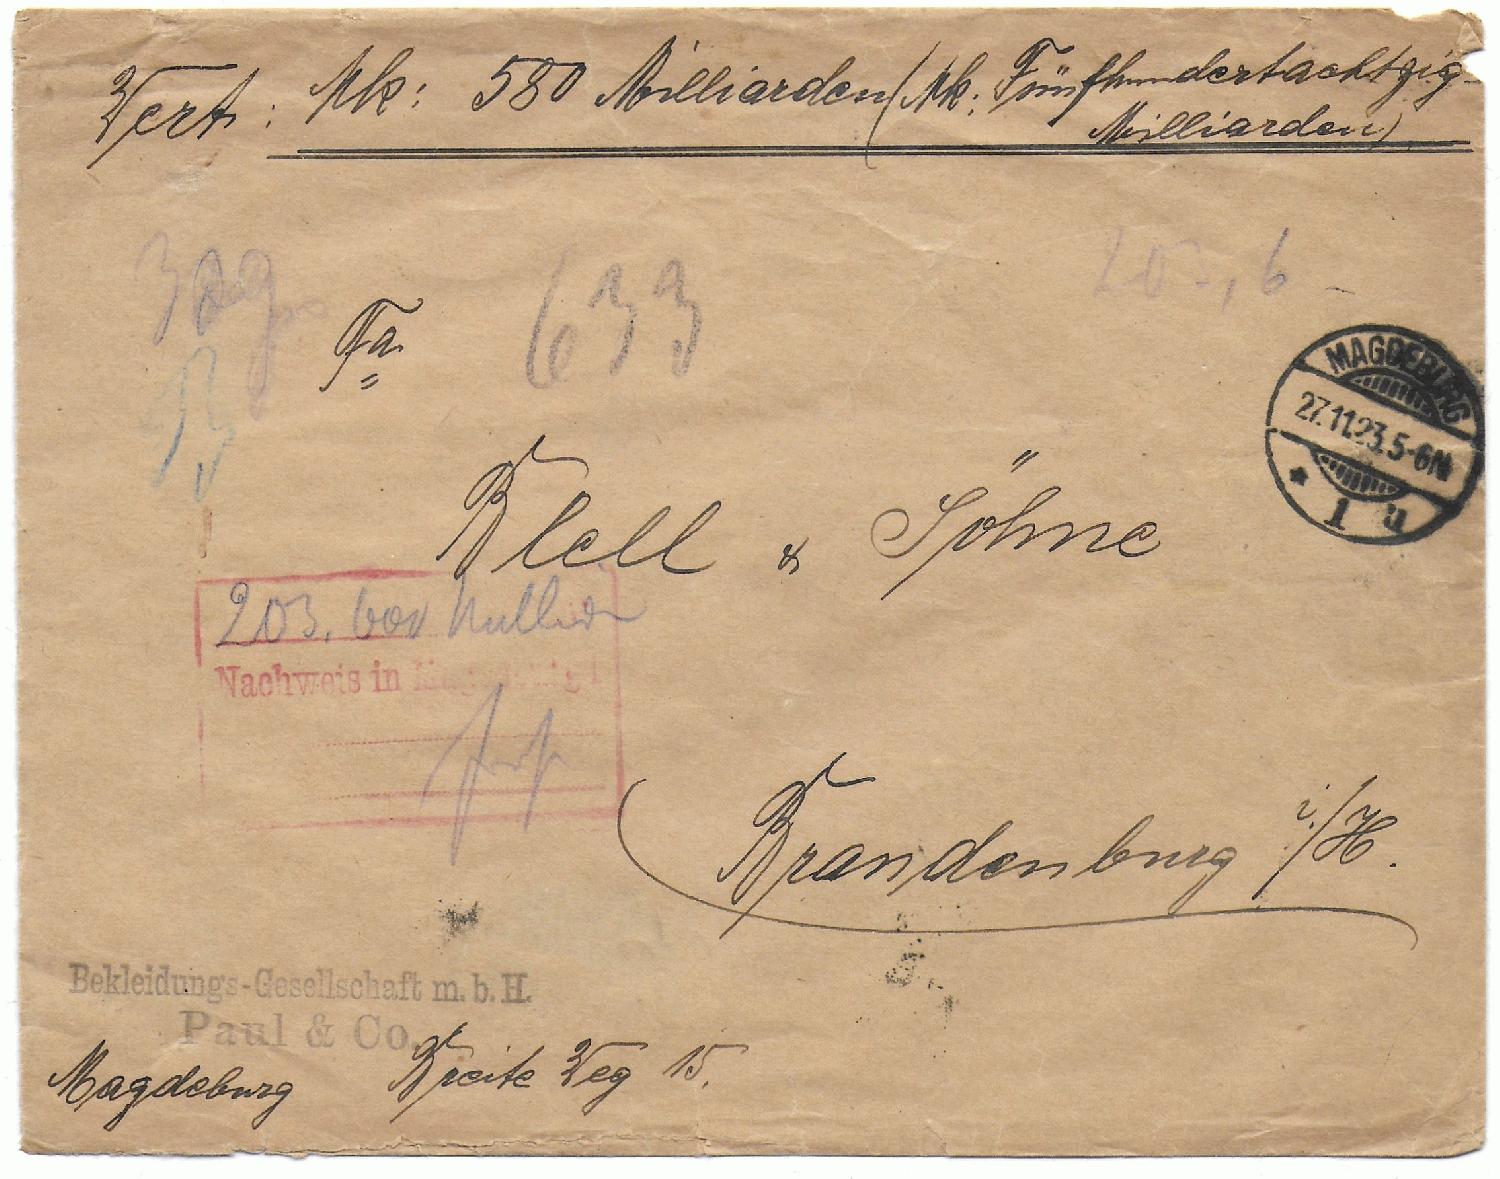 Wert: Mk: 580 Milliarden (Mk: Fünfhundertachtzig-
Milliarden)
205,6 -
633
Fa.
MAGDEBURG
27.11.23.5-6N
* 1 u
Blell & Söhne
203,600 Millionen
Nachweis in Magdeburg 1
Brandenburg i/H.
Bekleidungs-Gesellschaft m. b. H.
Paul & Co.
Magdeburg Breite Weg 15.